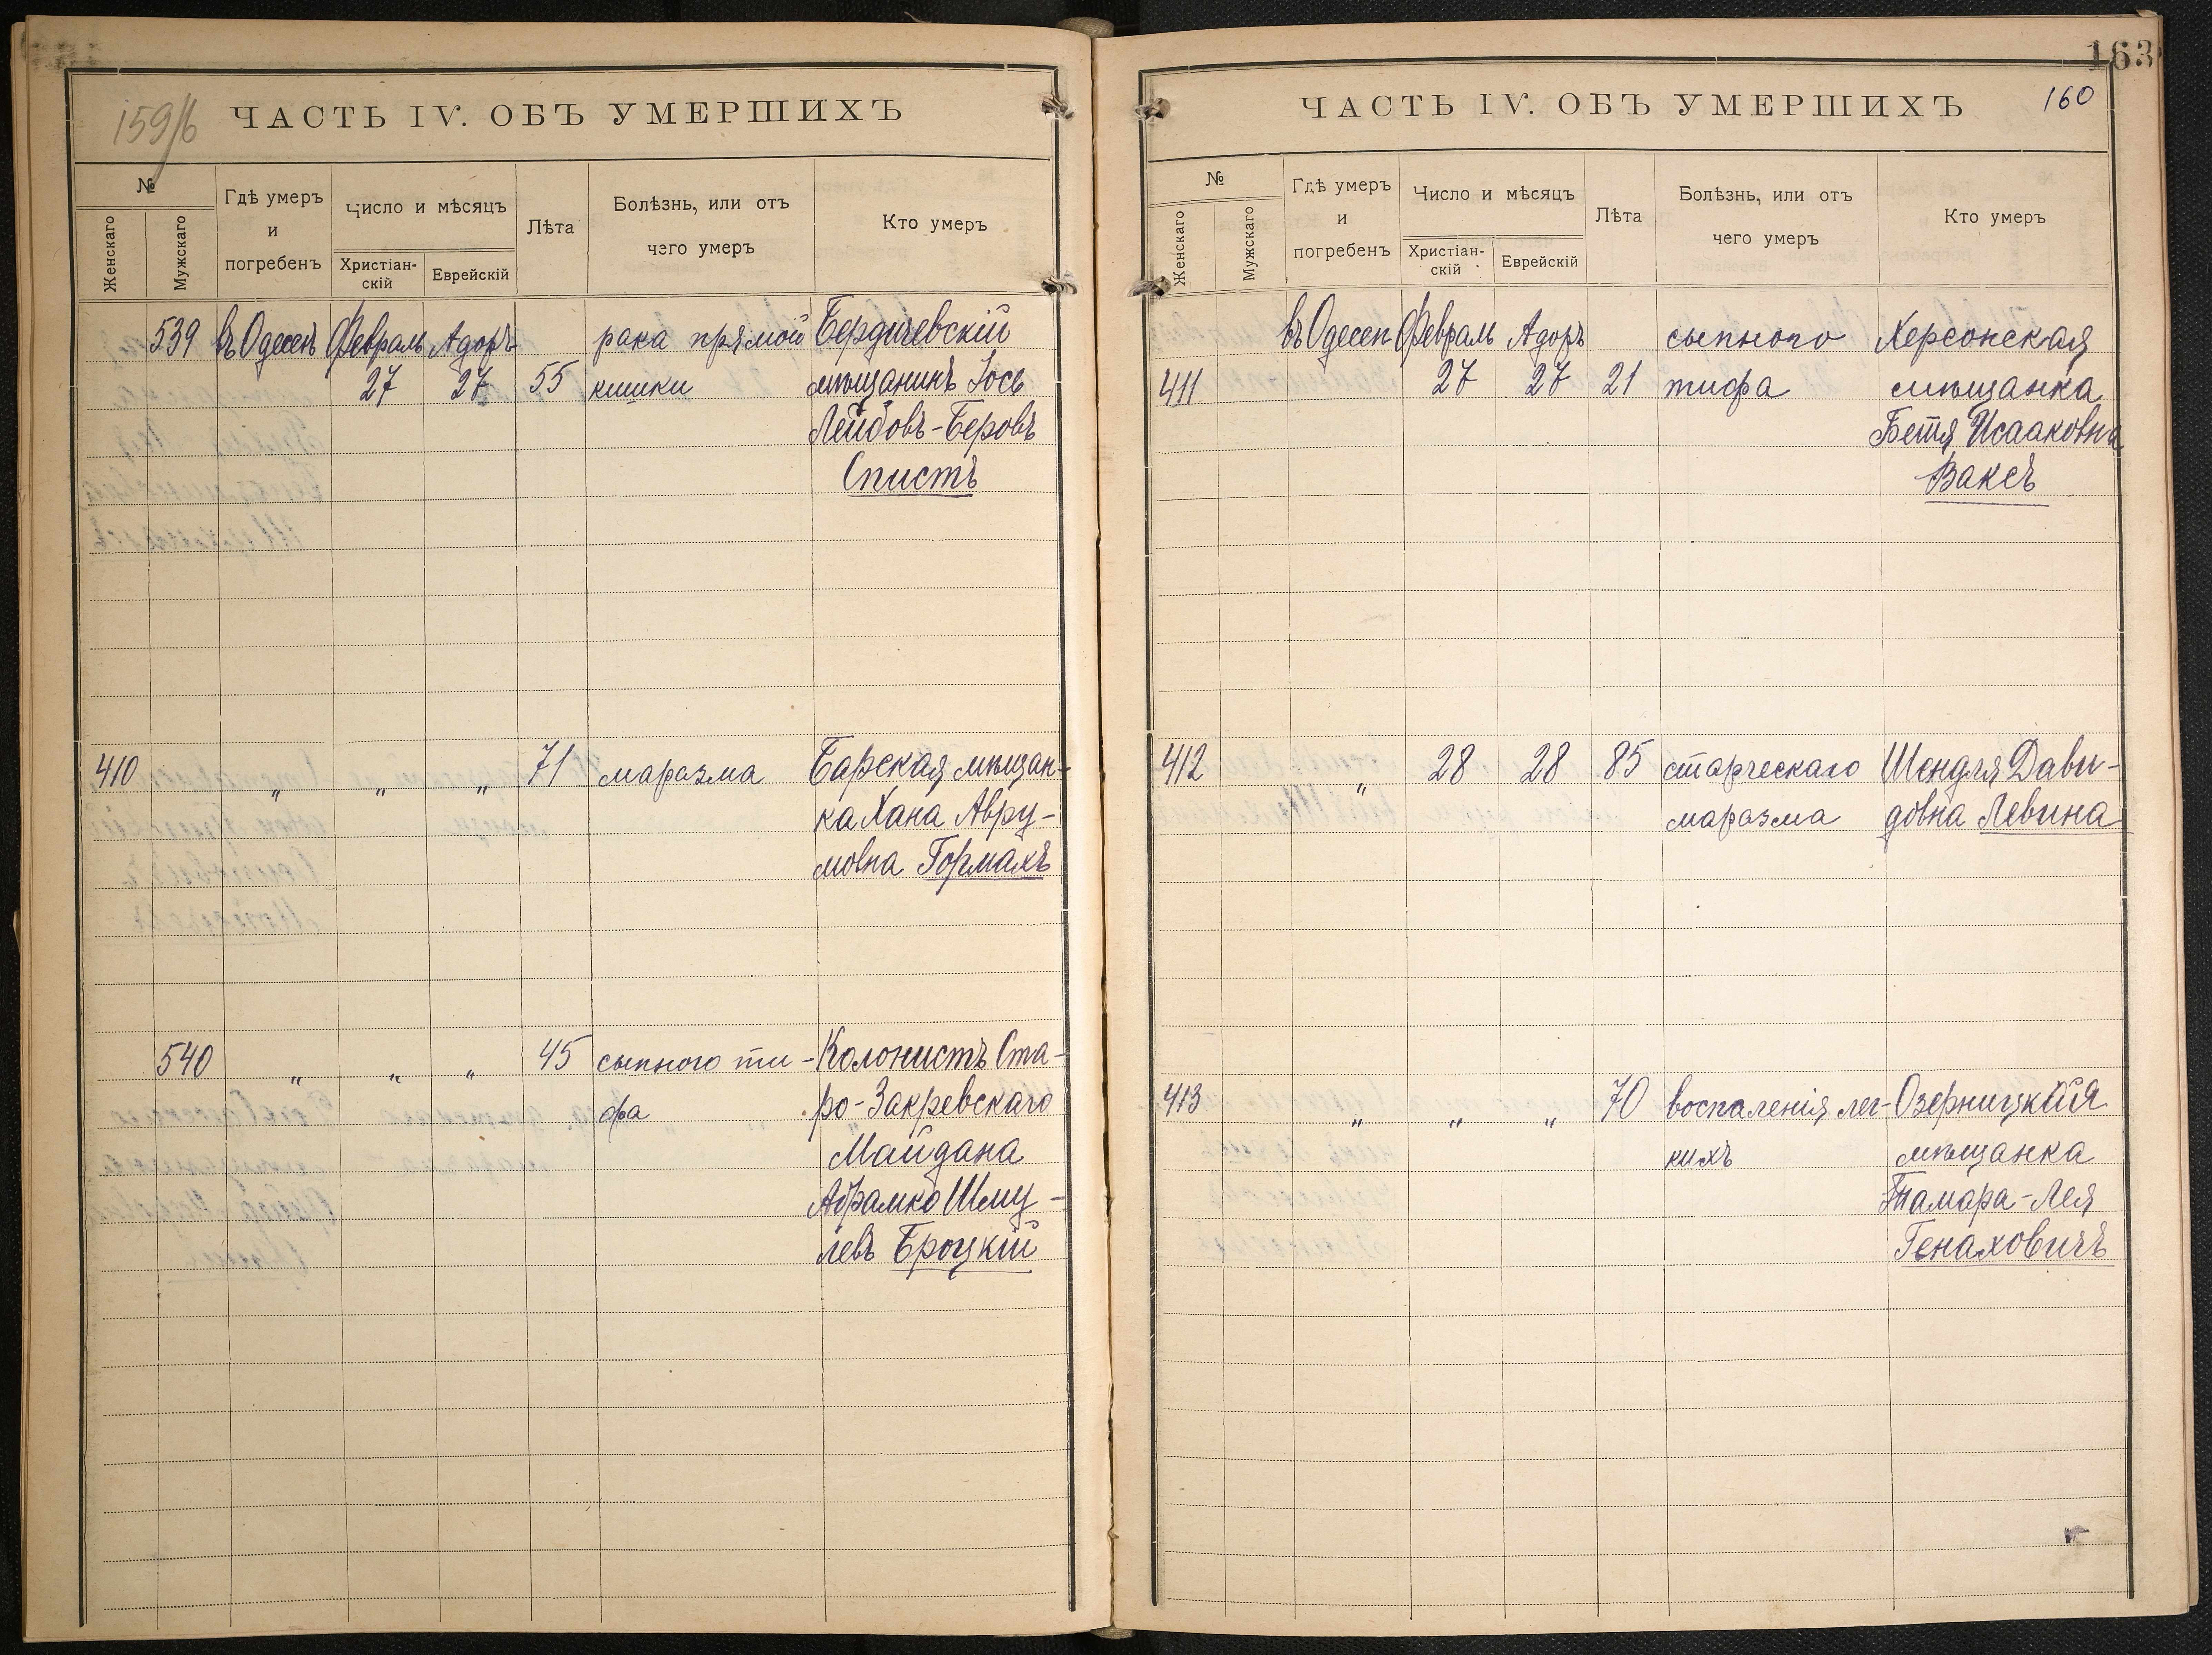 159/б
ЧАСТЬ IV. ОБЪ УМЕРШИХЪ
№
Женскаго
Мужскаго
Гдѣ умеръ
и
погребенъ
Число и мѣсяцъ
Христіан-
скій
Еврейскій
Лѣта
Болѣзнь, или отъ
чего умеръ
Кто умеръ
539 въ Одессѣ Февраль Адоръ рака прямой Бердичевскій
27 27 55 кишки мѣщанинъ Іось
Лейбовъ-Беровъ
Спистъ
410 " " " 71 маразма Барская мѣщан-
ка Хана Авру-
мовна Гормахъ
540 " " " 45 сыпного ти- Колонистъ Ста-
фа ро-Закревскаго
Майдана
Абрамко Шму-
левъ Броцкій
163
160
ЧАСТЬ IV. ОБЪ УМЕРШИХЪ
№
Женскаго
Мужскаго
Гдѣ умеръ
и
погребенъ
Число и мѣсяцъ
Христіан-
скій
Еврейскій
Лѣта
Болѣзнь, или отъ
чего умеръ
Кто умеръ
въ Одессѣ Февраль Адоръ сыпного Херсонская
411 27 27 21 тифа мѣщанка
Бетя Исааковна
Ваксъ
412 " 28 28 85 старческаго Шендля Дави-
маразма довна Левина
413 " " " 70 воспаленія лег- Озерницкая
кихъ мѣщанка
Тамара-Лея
Генаховичъ